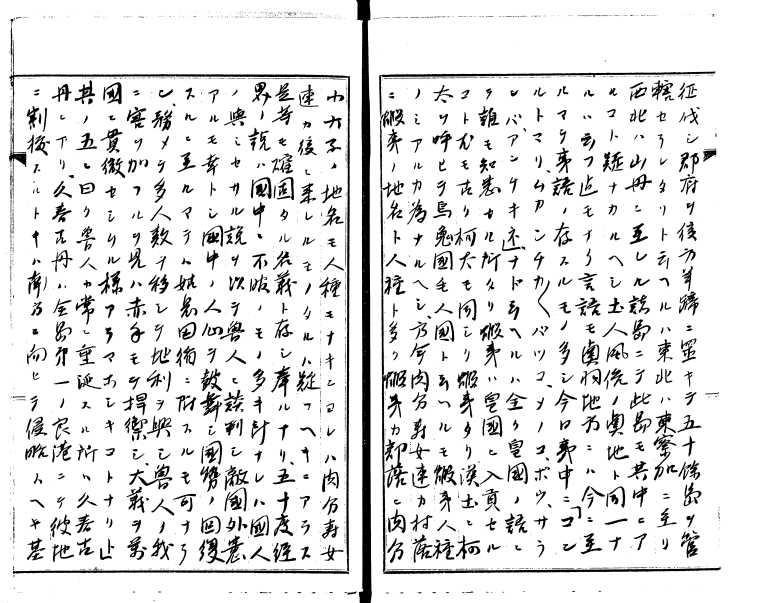 征伐シ郡府ヲ後方羊蹄ニ置キテ五十餘島ヲ管
轄セラレタリト云ヘルハ東北ハ東察加ニ至リ
西北ハ山丹ニ至レル諸島ニテ此島モ其中ニア
ルコト疑ナカルヘシ土人風俗ノ奥地ト同一ナ
ルハ云フ迄モナク言語モ奥羽地方ニハ今ニ至
ルマテ夷語ノ存スルモノ多シ今日夷中ニコン
ルトマリムカンチカ バツコメノコボウサラ
レバアンケキ ナド云ヘルハ全ク皇國ノ語ト
誰モ知悉セル所ナリ蝦夷ハ皇國ヘ入貢セル
コト尤モ古ク柯太モ同シク蝦夷タリ漢土ニ柯
太ヲ呼ヒテ烏 國毛人國ト云ヘルモ蝦夷人種
ノミアルカ為ナルヘシ方今肉分寿女連カ村落
ニ蝦夷ノ地名ト人種ト多ク蝦夷カ部落ニ肉分
ノ地名モ人種モナキニヨレハ肉分寿女
連カ後ニ来レルモノタルハ疑フヘキニアラス
是等モ確固タル名義ト存シ奉ルナリ五十度経
界ノ説ハ國中ニ不服ノモノ多キ計ナレハ國人
ノ與ミセサル説ヲ以テ魯人ト談判シ敵國外患
アルモ幸トシ國中ノ人心ヲ鼓舞シ國勢ノ回復
スルニ至ルマテハ姑息因循ニ附スルモ可ナラン
務メテ多人数ヲ移シテ地利ヲ興シ魯人ノ我
ニ害ヲ加フルヲ見ハ赤手モテ捍禦シ大義ヲ萬
國ニ貫徹セシムル様アラマホシキコトナリ止
其ノ五ニ曰ク魯人カ常ニ垂涎スル所ハ久春古
丹ニアリ久春古丹ハ全島第一ノ良港ニテ彼地
ニ割據スルトキハ南方ニ向ヒテ侵略スヘキ基